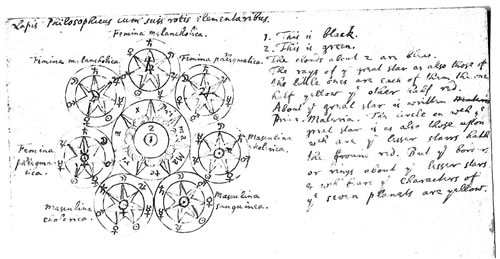 Lapis Philosophicus cum suis rotis elementaribus.
Femina melancholica.
Femina melancholica.
Femina phlegmatica.
Femina
phlegma-
tica.
Masculina
cholerica.
Masculina
sanguinea.
1. This is black.
2. This is green.
The clouds about 2 are blew.
The rays of ye great star as also those of
the little ones are each of them the one
half yellow ye other half red.
About ye great star is written
Prim. Materia. The circle on wch ye
great star is as also those upon
wch are ye lesser stars hath
the ground red. But ye borders
or rays about ye lesser stars
& wch are ye characters of
ye seven planets are yellow.